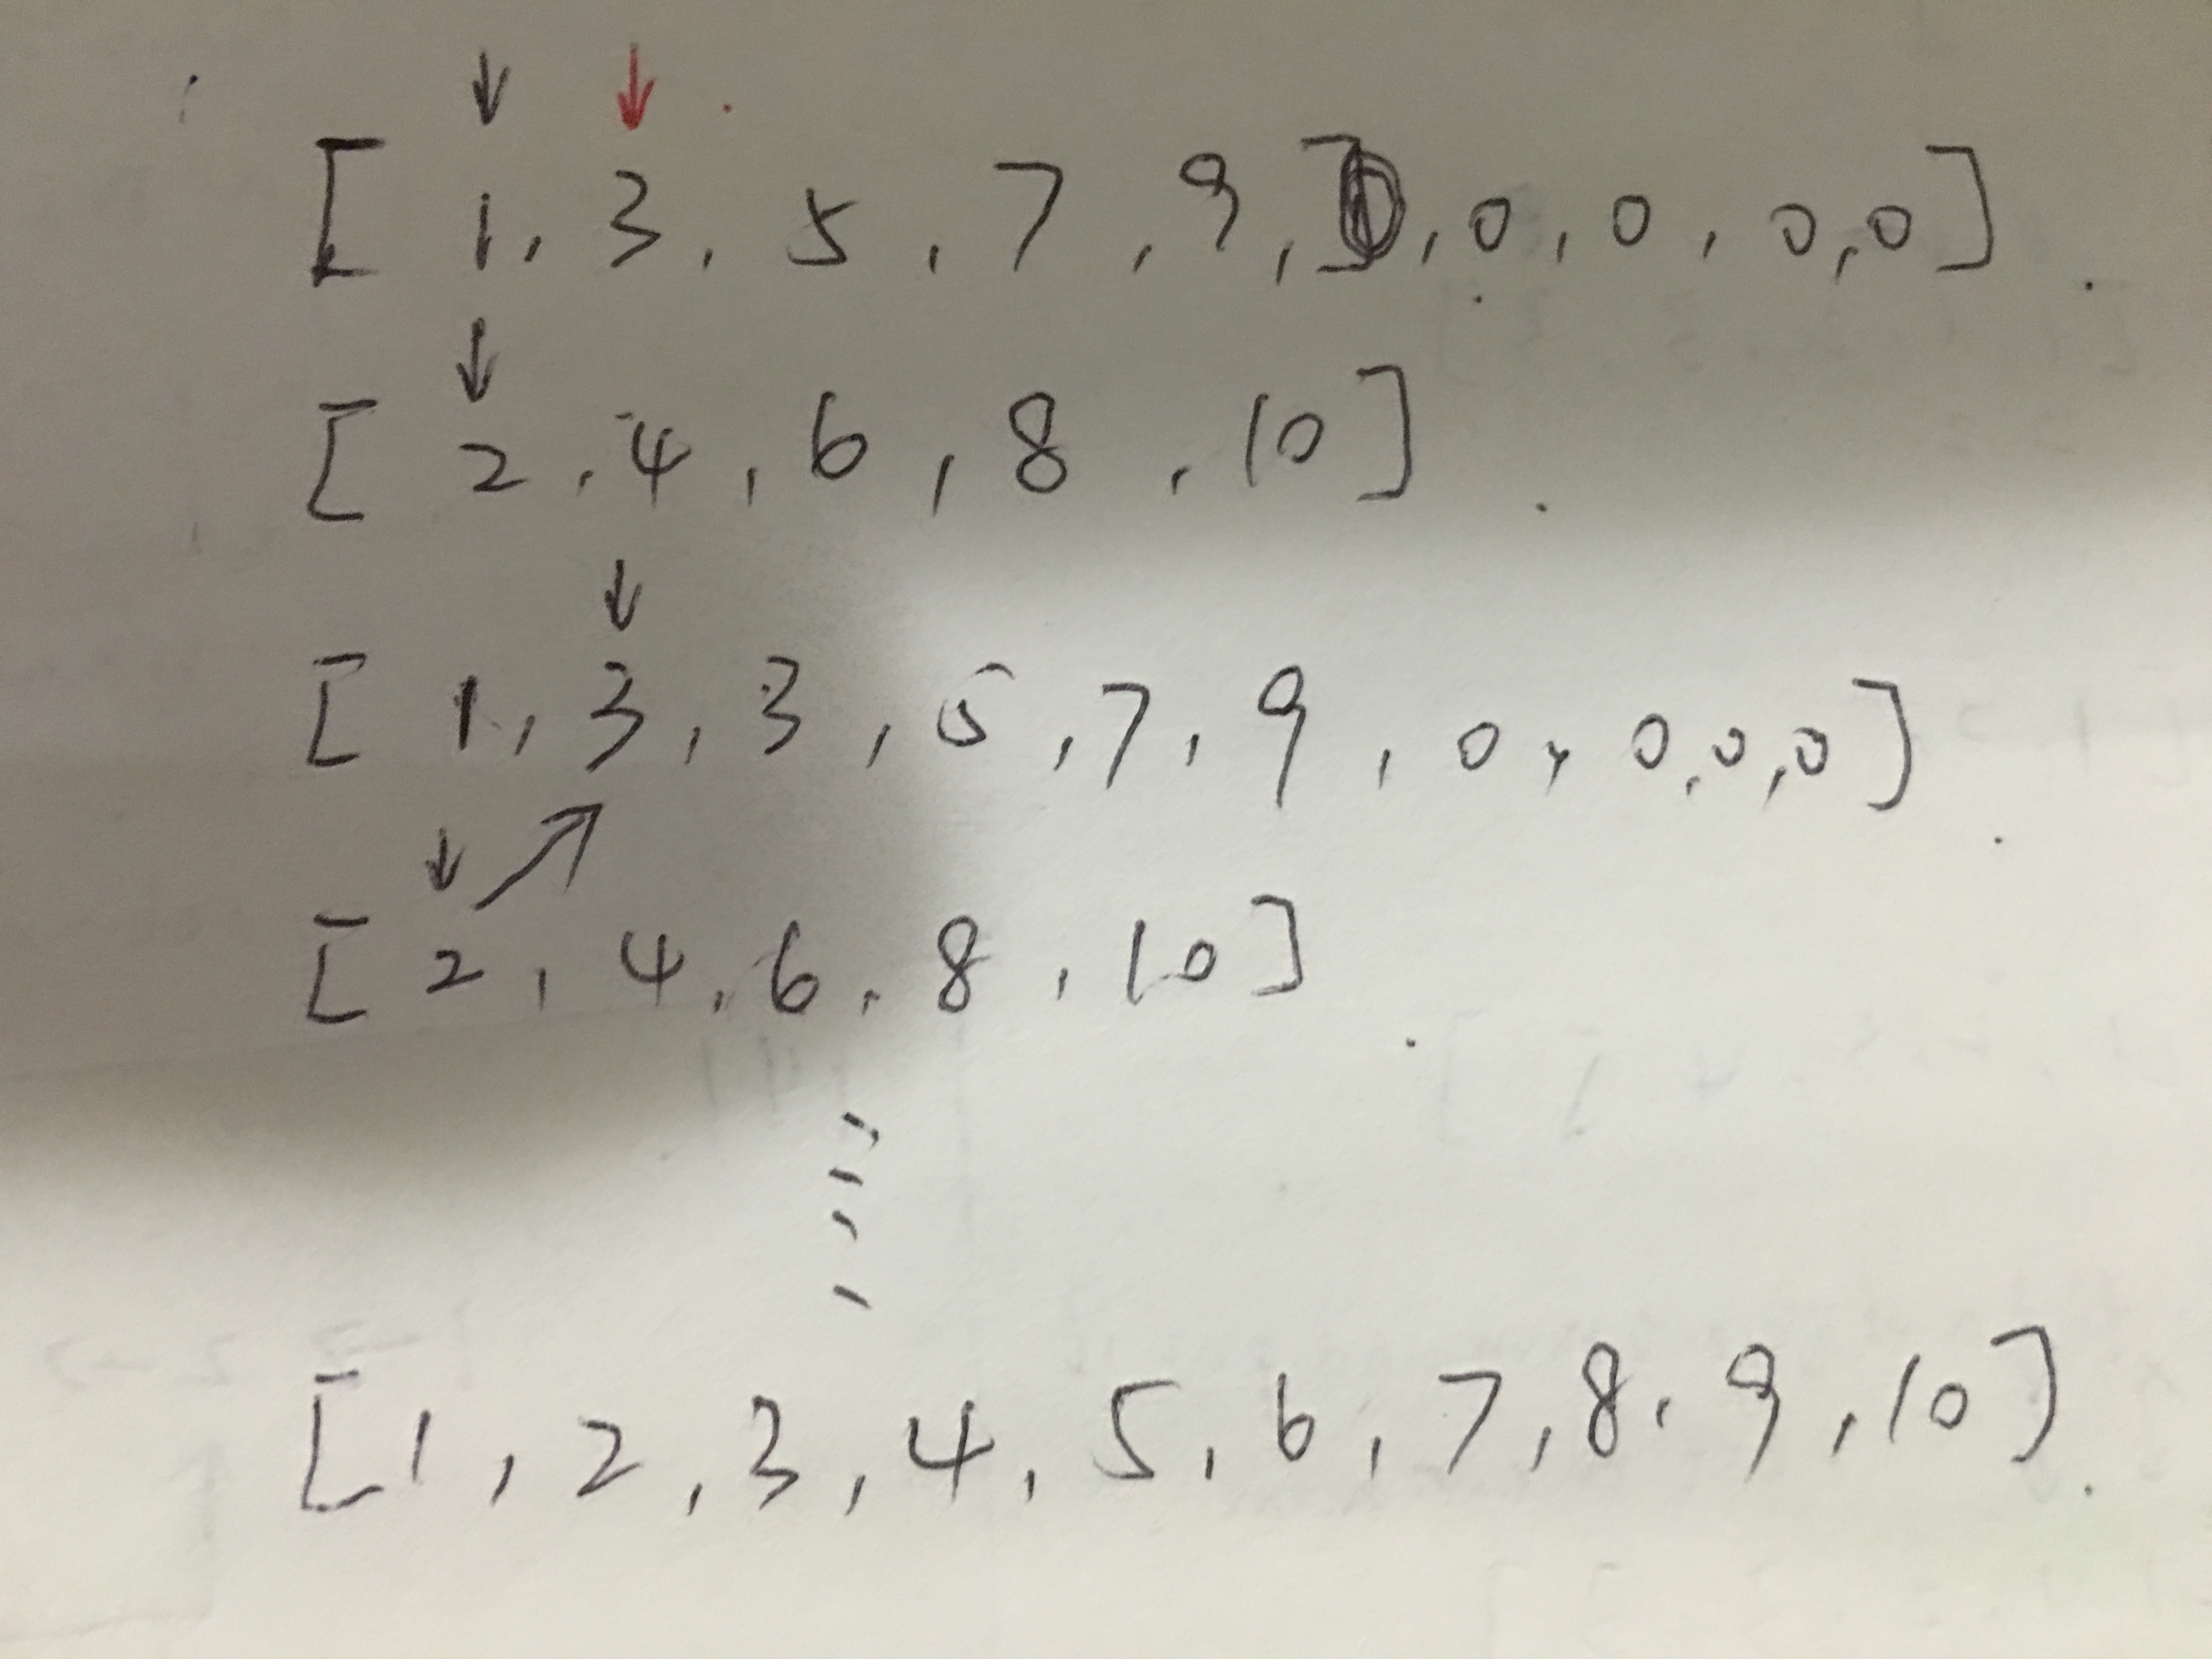 [ 1, 3, 5, 7, 9, ] , 0, 0, 0, 0]
[ 2, 4, 6, 8, 10]
[ 1, 3, 3, 5, 7, 9, 0, 0, 0, 0]
[ 2, 4, 6, 8, 10]
[1, 2, 3, 4, 5, 6, 7, 8, 9, 10]